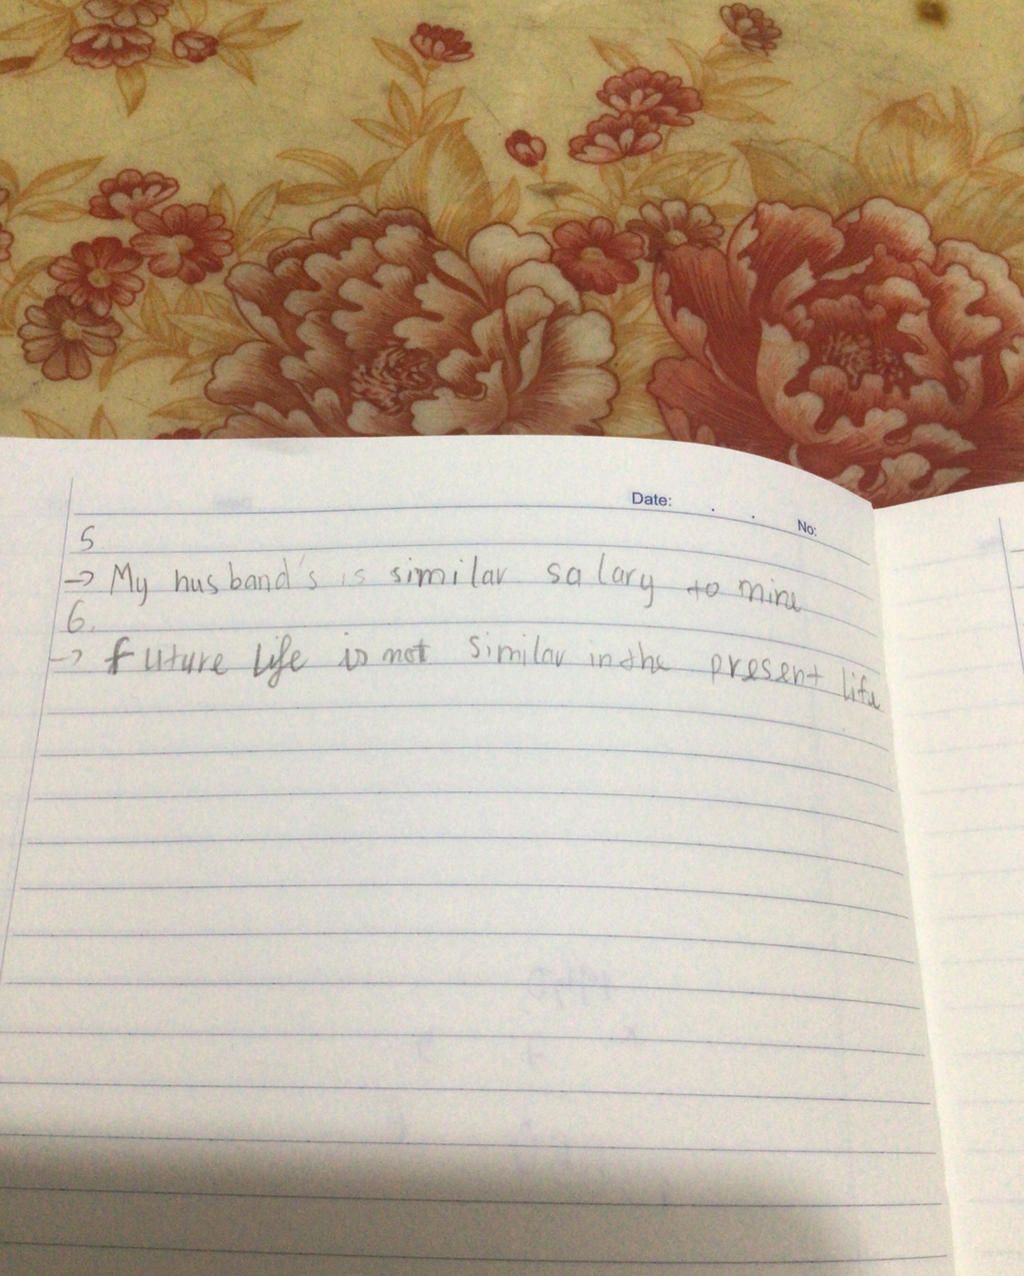 Date: . .
No:
5
→ My husband's is similar salary to mine
6.
→ future life is not similar in the present life